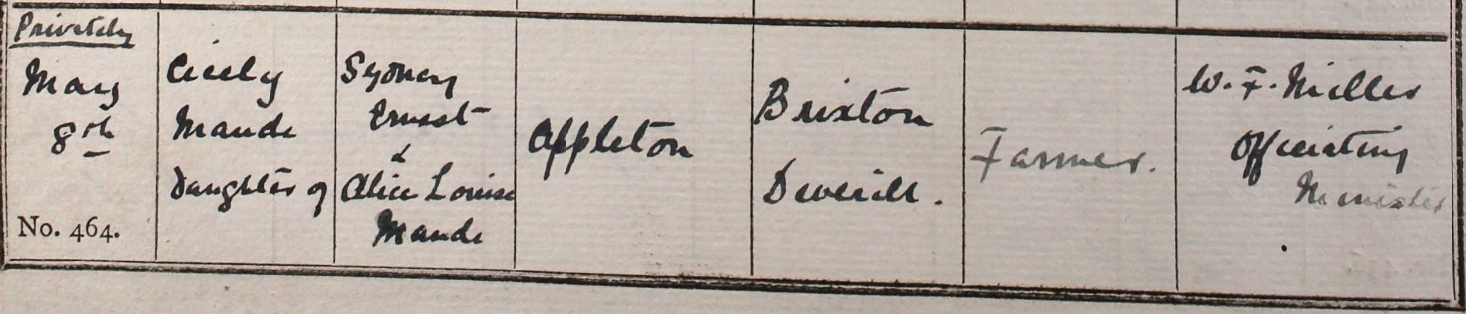 Privately
May
8th
No. 464.
Cicely
Maude
Daughter of
Sydney
Ernest
&
Alice Louisa
Maude
Appleton
Brixton
Deverill.
Farmer.
W. F. Miller
Officiating
Minister